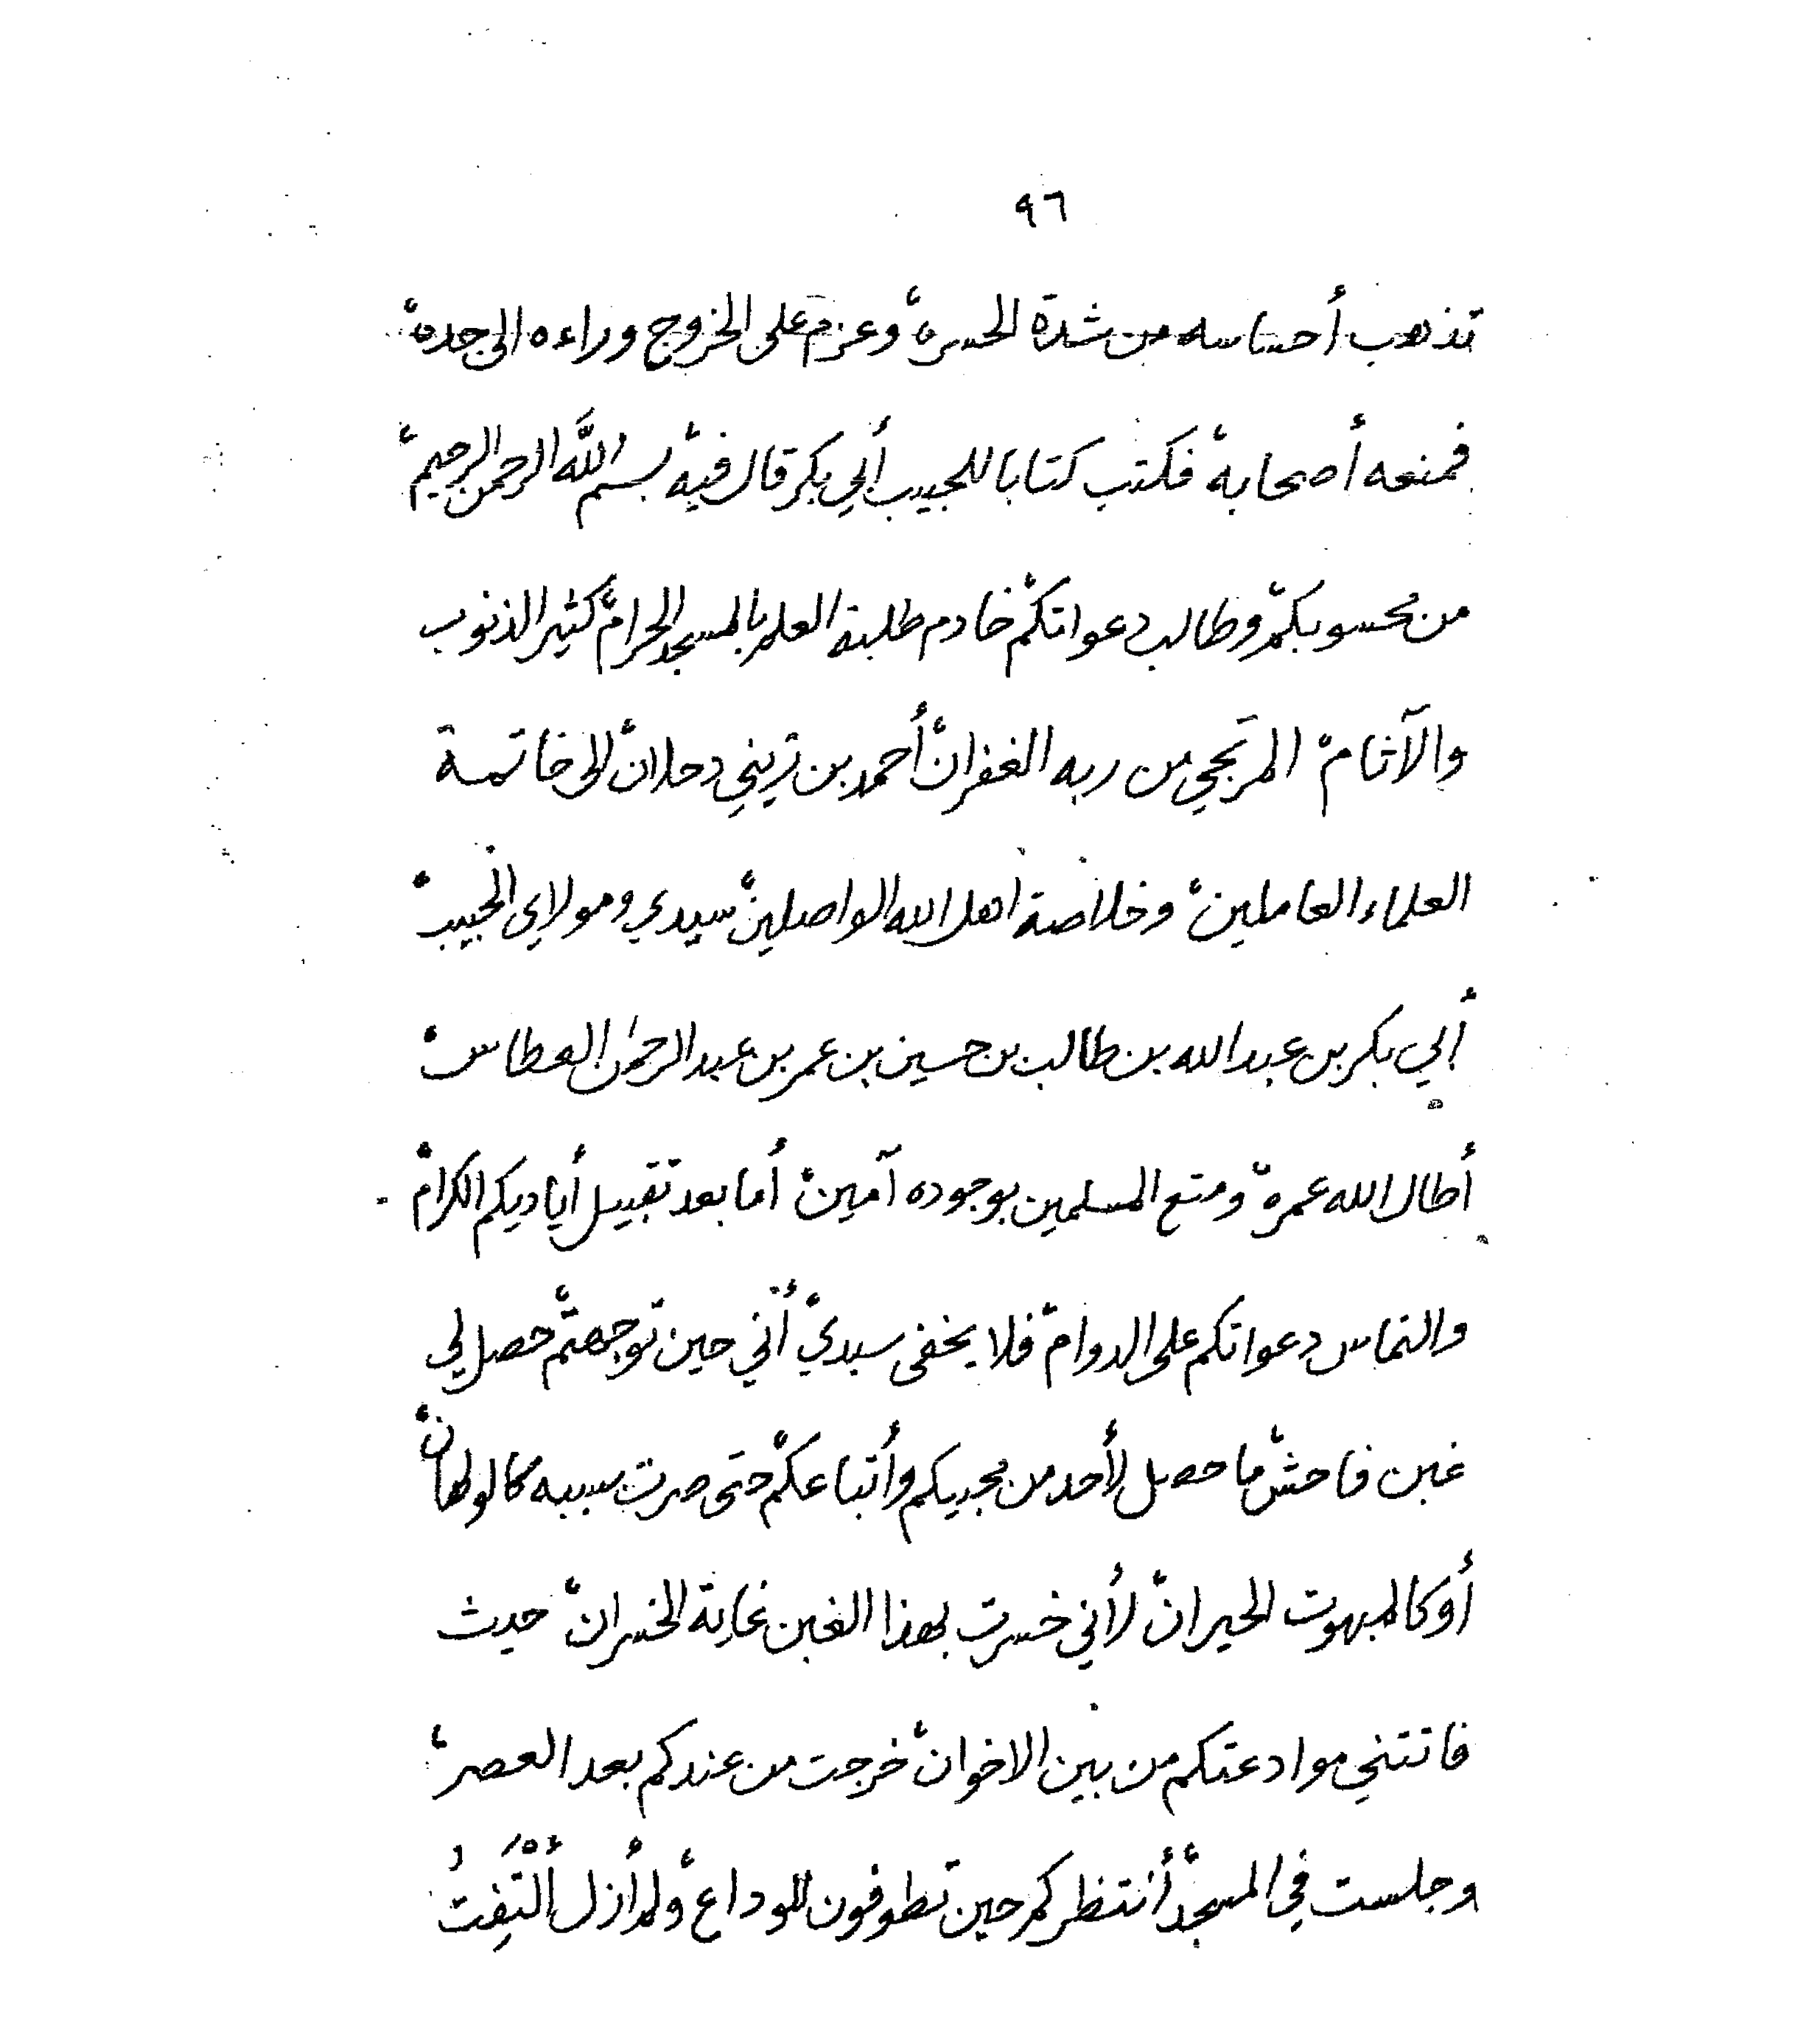 ٩٦
تذهب أحساسه من شدة الحسرة، وعزم على الخروج وراءه الى جدة،
فمنعه أصحابه، فكتب كتابا للحبيب أبي بكر قال فيه، بسم الله الرحمن الرحيم،
من محسوبكم، وطالب دعواتكم، خادم طلبة العلم بالمسجد الحرام، كثير الذنوب
والآثام، المرتجي من ربه الغفران، أحمد بن زيني دحلان، الى خاتمة
العلماء العاملين، وخلاصة اهل الله الواصلين، سيدي ومولاي الحبيب،
أبي بكر بن عبد الله بن طالب بن حسين بن عمر بن عبد الرحمن العطاس،
أطال الله عمره، ومتع المسلمين بوجوده آمين، أما بعد تقبيل أياديكم الكرام،
والتماس دعواتكم على الدوام، فلا يخفى سيدي، أنّي حين توجهتم، حصل لي
غبن فاحش، ما حصل لأحد من محبيكم وأتباعكم، حتى صرت بسببه كالولهان،
أو كالمبهوت الحيران، لأني خسرت بهذا الغبن غاية الخسران، حيث
فاتتني موادعتكم من بين الاخوان، خرجت من عندكم بعد العصر،
وجلست في المسجد، أنتظركم حين تطوفون للوداع، ولم أزل أَلْتَفِتُ